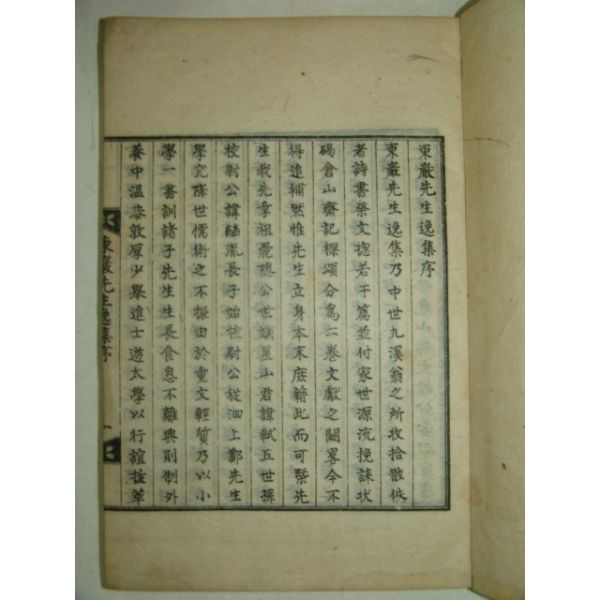 東巖先生逸集序
東巖先生逸集乃中世九溪翁之所收拾散佚
者詩書祭文摠若干篇並付家世源流挽誄狀
碣倉山齋記樑頌分爲二卷文獻之闕畧今不
得追補然惟先生立身本末庶籍此而可槩先
生我先季祖麗隱公世嫡星山君諱軾五世孫
校尉公諱胤長子始校尉公從泗上鄭先生
學究降世儒術之不振由於重文輕質乃以小
學一書訓諸子先生生長食息不離典則制外
養中溫恭敦厚少擧進士遊太學以行誼拔萃
東巖先生逸集序
一